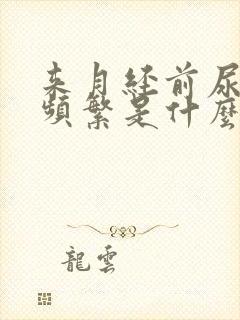 来月経前尿
頻繁是什麼
龍雲